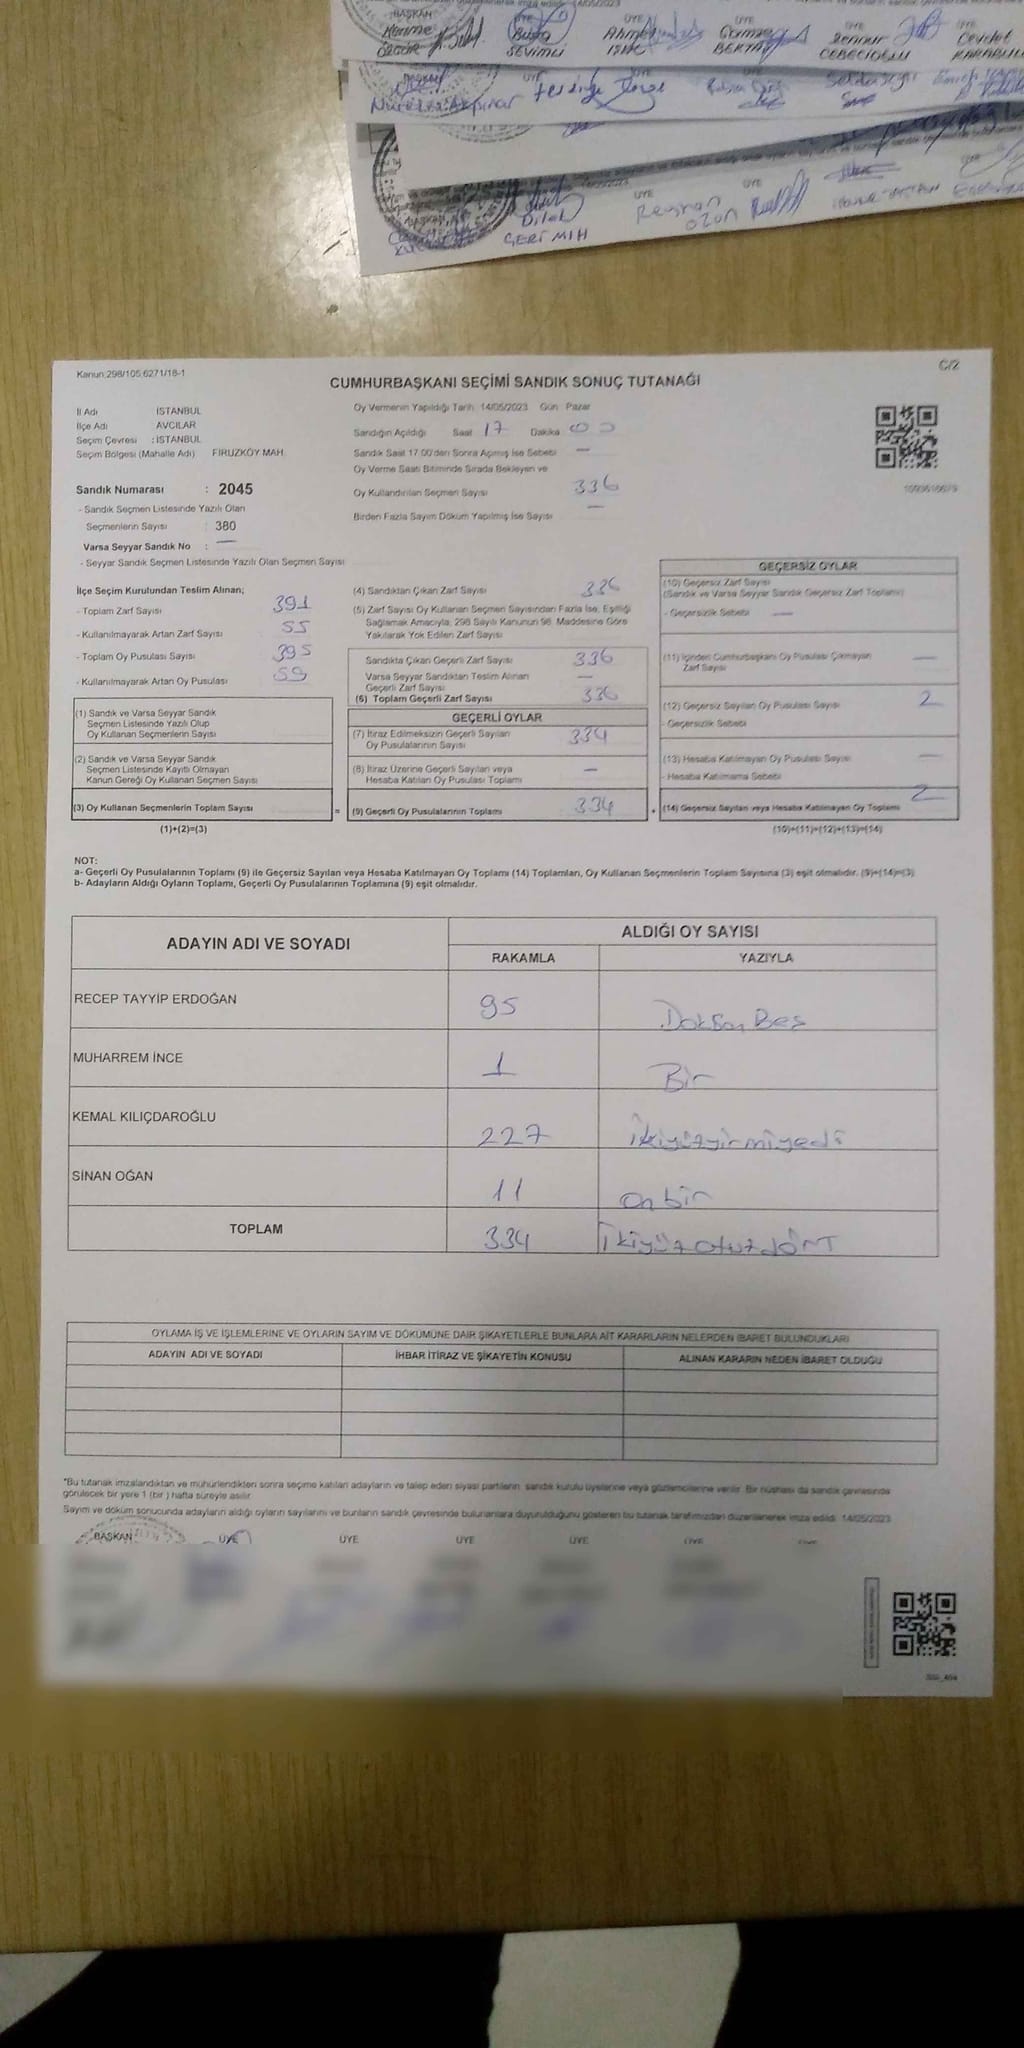 BAŞKAN ÜYE ÜYE ÜYE ÜYE ÜYE
Kerime Buğra Ahmet Sennur Cevdet
ÖZGÜR SEVİMLİ BEKTAŞ CEBECİOĞLU KARABULU
BAŞKAN ÜYE ÜYE
Akpınar
BAŞKAN ÜYE ÜYE ÜYE
Dilek Reyhan
ozon
Kanun:298/105.6271/18-1
C/2
CUMHURBAŞKANI SEÇİMİ SANDIK SONUÇ TUTANAĞI
İl Adı İSTANBUL
İlçe Adı AVCILAR
Seçim Çevresi : İSTANBUL
Seçim Bölgesi (Mahalle Adı) FİRUZKÖY MAH.
Sandık Numarası : 2045
- Sandık Seçmen Listesinde Yazılı Olan
Seçmenlerin Sayısı : 380
Varsa Seyyar Sandık No : —
- Seyyar Sandık Seçmen Listesinde Yazılı Olan Seçmen Sayısı
Oy Vermenin Yapıldığı Tarih: 14/05/2023 Gün: Pazar
Sandığın Açıldığı Saat 17 Dakika 00
Sandık Saat 17:00'den Sonra Açılmış İse Sebebi —
Oy Verme Saati Bitiminde Sırada Bekleyen ve
Oy Kullandırılan Seçmen Sayısı 336
Birden Fazla Sayım Döküm Yapılmış İse Sayısı —
İlçe Seçim Kurulundan Teslim Alınan;
- Toplam Zarf Sayısı 391
- Kullanılmayarak Artan Zarf Sayısı 55
- Toplam Oy Pusulası Sayısı 395
- Kullanılmayarak Artan Oy Pusulası 59
(1) Sandık ve Varsa Seyyar Sandık
Seçmen Listesinde Yazılı Olup
Oy Kullanan Seçmenlerin Sayısı
(2) Sandık ve Varsa Seyyar Sandık
Seçmen Listesinde Kayıtlı Olmayan
Kanun Gereği Oy Kullanan Seçmen Sayısı
(3) Oy Kullanan Seçmenlerin Toplam Sayısı =
(1)+(2)=(3)
(4) Sandıktan Çıkan Zarf Sayısı 336
(5) Zarf Sayısı Oy Kullanan Seçmen Sayısından Fazla İse, Eşitliği
Sağlamak Amacıyla, 298 Sayılı Kanunun 98. Maddesine Göre
Yakılarak Yok Edilen Zarf Sayısı
Sandıkta Çıkan Geçerli Zarf Sayısı 336
Varsa Seyyar Sandıktan Teslim Alınan
Geçerli Zarf Sayısı —
(6) Toplam Geçerli Zarf Sayısı 336
GEÇERLİ OYLAR
(7) İtiraz Edilmeksizin Geçerli Sayılan
Oy Pusulalarının Sayısı 334
(8) İtiraz Üzerine Geçerli Sayılan veya
Hesaba Katılan Oy Pusulası Toplamı —
(9) Geçerli Oy Pusulalarının Toplamı 334 +
GEÇERSİZ OYLAR
(10) Geçersiz Zarf Sayısı
(Sandık ve Varsa Seyyar Sandık Geçersiz Zarf Toplamı)
- Geçersizlik Sebebi —
(11) İçinden Cumhurbaşkanı Oy Pusulası Çıkmayan
Zarf Sayısı —
(12) Geçersiz Sayılan Oy Pusulası Sayısı 2
- Geçersizlik Sebebi
(13) Hesaba Katılmayan Oy Pusulası Sayısı —
- Hesaba Katılmama Sebebi
(14) Geçersiz Sayılan veya Hesaba Katılmayan Oy Toplamı 2
(10)+(11)+(12)+(13)=(14)
NOT:
a- Geçerli Oy Pusulalarının Toplamı (9) ile Geçersiz Sayılan veya Hesaba Katılmayan Oy Toplamı (14) Toplamları, Oy Kullanan Seçmenlerin Toplam Sayısına (3) eşit olmalıdır. (9)+(14)=(3)
b- Adayların Aldığı Oyların Toplamı, Geçerli Oy Pusulalarının Toplamına (9) eşit olmalıdır.
ADAYIN ADI VE SOYADI ALDIĞI OY SAYISI
RAKAMLA YAZIYLA
RECEP TAYYİP ERDOĞAN 95 Doksan Beş
MUHARREM İNCE 1 Bir
KEMAL KILIÇDAROĞLU 227 İkiyüzyirmiyedi
SİNAN OĞAN 11 on bir
TOPLAM 334 İkiyüzotuzdörT
OYLAMA İŞ VE İŞLEMLERİNE VE OYLARIN SAYIM VE DÖKÜMÜNE DAİR ŞİKAYETLERLE BUNLARA AİT KARARLARIN NELERDEN İBARET BULUNDUKLARI
ADAYIN ADI VE SOYADI İHBAR İTİRAZ VE ŞİKAYETİN KONUSU ALINAN KARARIN NEDEN İBARET OLDUĞU
*Bu tutanak imzalandıktan ve mühürlendikten sonra seçime katılan adayların ve talep eden siyasi partilerin sandık kurulu üyelerine veya gözlemcilerine verilir. Bir nüshası da sandık çevresinde
görülecek bir yere 1 (bir) hafta süreyle asılır.
Sayım ve döküm sonucunda adayların aldığı oyların sayılarını ve bunların sandık çevresinde bulunanlara duyurulduğunu gösteren bu tutanak tarafımızdan düzenlenerek imza edildi. 14/05/2023
BAŞKAN ÜYE ÜYE ÜYE ÜYE ÜYE